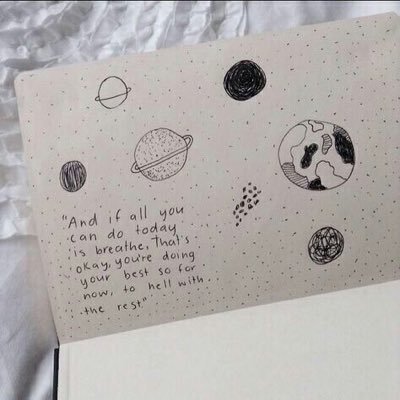 "And if all you
can do today
is breathe, That's
okay, you're doing
your best so for
now, to hell with
the rest"